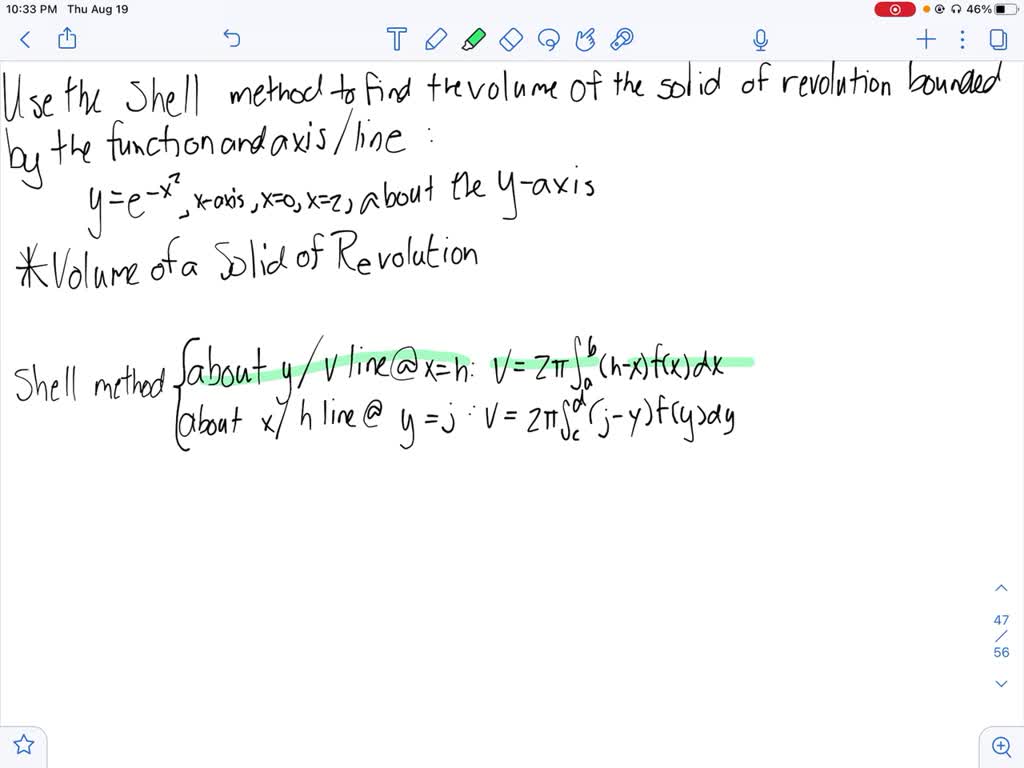 10:33 PM Thu Aug 19
46%
T
Use the Shell method to find the volume of the solid of revolution bounded
by the function and axis/line :
y=e^-x^2, x-axis, x=0, x=2, about the y-axis
*Volume of a Solid of Revolution
Shell method { about y / v line @ x=h: V = 2π∫_a^b (h-x)f(x)dx
about x/ h line @ y=j: V = 2π∫_c^d (j-y)f(y)dy
47
/
56